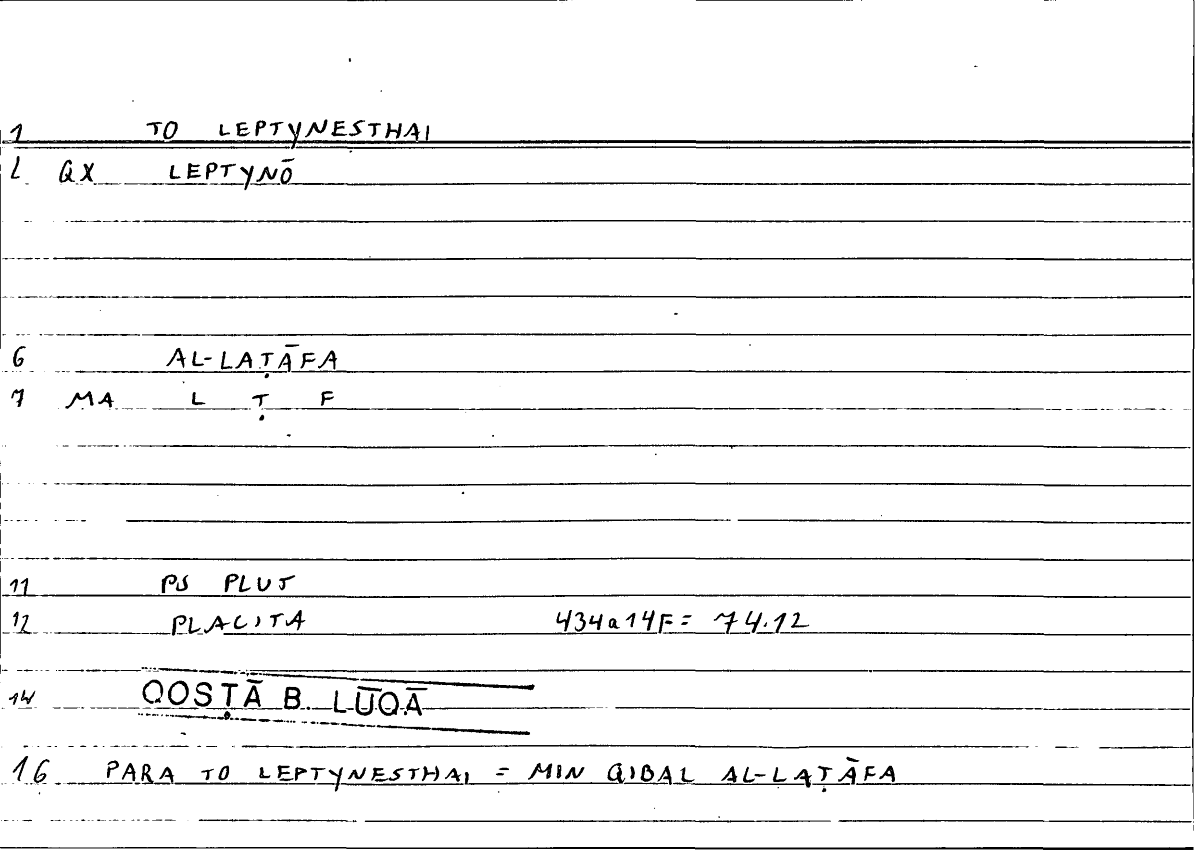 1 TO LEPTYNESTHAI
L QX LEPTYNŌ
6 AL-LAṬĀFA
7 MA L Ṭ F
11 PS PLUT
12 PLACITA 434a14F = 74.12
14 QOSṬĀ B. LŪQĀ
16 PARA TO LEPTYNESTHAI = MIN QIBAL AL-LAṬĀFA